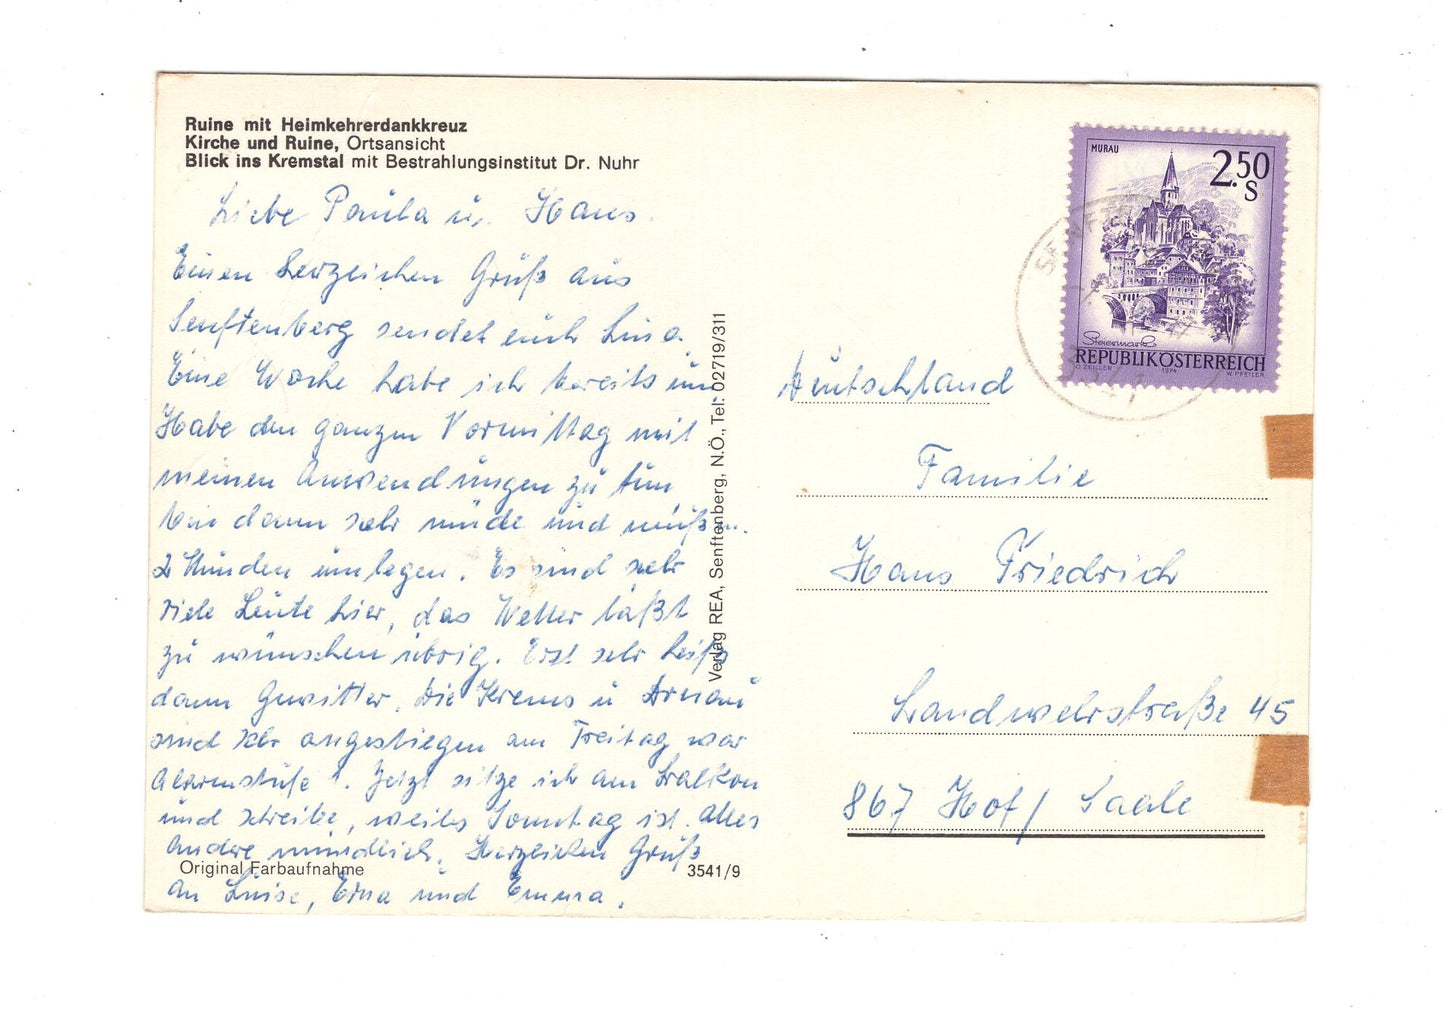 Ruine mit Heimkehrerdankkreuz
Kirche und Ruine, Ortsansicht
Blick ins Kremstal mit Bestrahlungsinstitut Dr. Nuhr
Liebe Paula u. Hans.
Einen herzlichen Gruß aus
Senftenberg sendet euch Lina.
Eine Woche habe ich bereits um.
Habe den ganzen Vormittag mit
meinen Anwendungen zu tun,
bin dann sehr müde und muß
2 Stunden umlegen. Es sind sehr
viele Leute hier, das Wetter läßt
zu wünschen übrig. Erst sehr heiß
dann Gewitter. Die Krems u Donau
sind sehr angestiegen am Freitag war
Alarmstufe 1. Jetzt sitze ich am Balkon
und schreibe, weils Sonntag ist. Alles
Andre mündlich. Herzlichen Gruß
an Luise, Erna und Emma.
Original Farbaufnahme
3541/9
Verlag REA, Senftenberg, N.Ö., Tel: 02719/311
MURAU
2.50
S
Steiermark
REPUBLIK ÖSTERREICH
O. ZEILLER 1974 W. PFEILER
Deutschland
Familie
Hans Friedrich
Landwehrstraße 45
867 Hof/ Saale